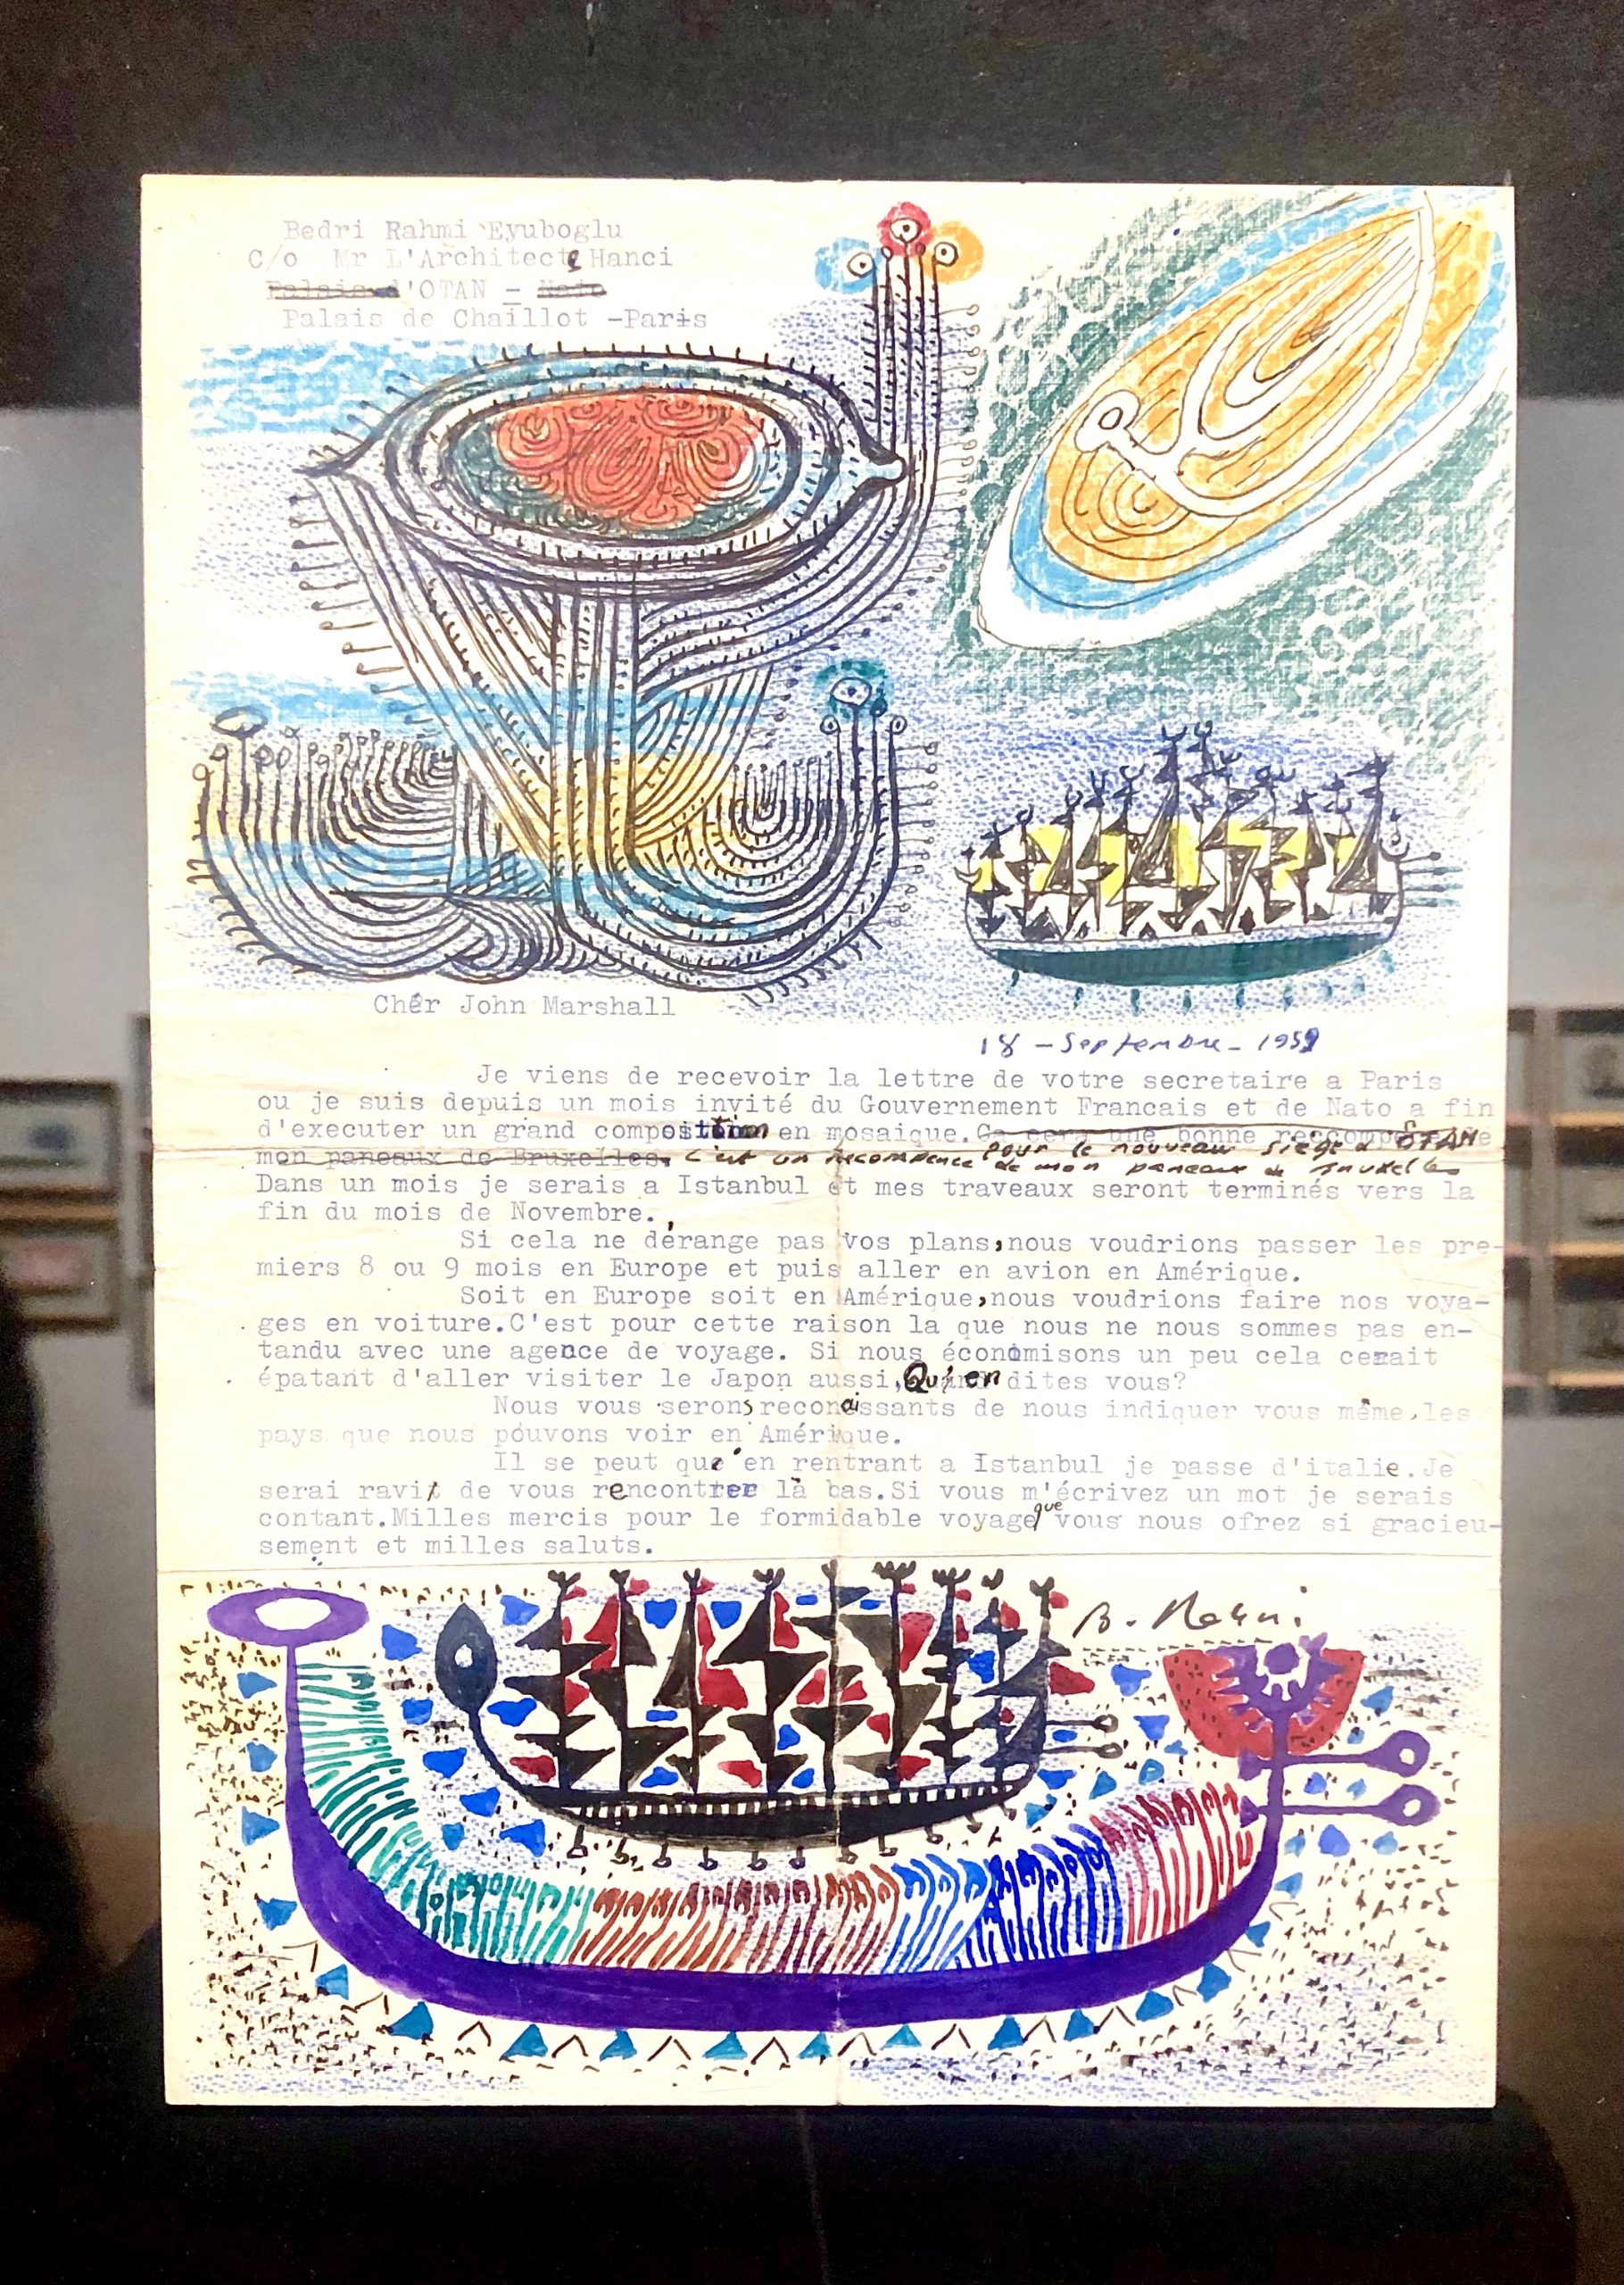 Bedri Rahmi Eyuboglu
C/o Mr L'Architecte Hanci
Palais d'OTAN - Nato
Palais de Chaillot -Paris
Chér John Marshall
18 - Septembre - 1959
Je viens de recevoir la lettre de votre secretaire a Paris
ou je suis depuis un mois invité du Gouvernement Francais et de Nato a fin
d'executer un grand composition en mosaique. Ca cera une bonne reccompense
pour le nouveau siège d'OTAN
mon paneaux de Bruxelles. c'est un recompence de mon paneaux de Bruxelles
Dans un mois je serais a Istanbul et mes traveaux seront terminés vers la
fin du mois de Novembre.
Si cela ne dérange pas vos plans, nous voudrions passer les pre-
miers 8 ou 9 mois en Europe et puis aller en avion en Amérique.
Soit en Europe soit en Amérique, nous voudrions faire nos voya-
ges en voiture.C'est pour cette raison la que nous ne nous sommes pas en-
tandu avec une agence de voyage. Si nous économisons un peu cela cerait
épatant d'aller visiter le Japon aussi, Qu'en dites vous?
Nous vous serons reconaissants de nous indiquer vous même, les
pays que nous pouvons voir en Amérique.
Il se peut que en rentrant a Istanbul je passe d'italie.Je
serai ravi de vous rencontrer là bas.Si vous m'écrivez un mot je serais
contant.Milles mercis pour le formidable voyage que vous nous ofrez si gracieu-
sement et milles saluts.
B. Rahmi